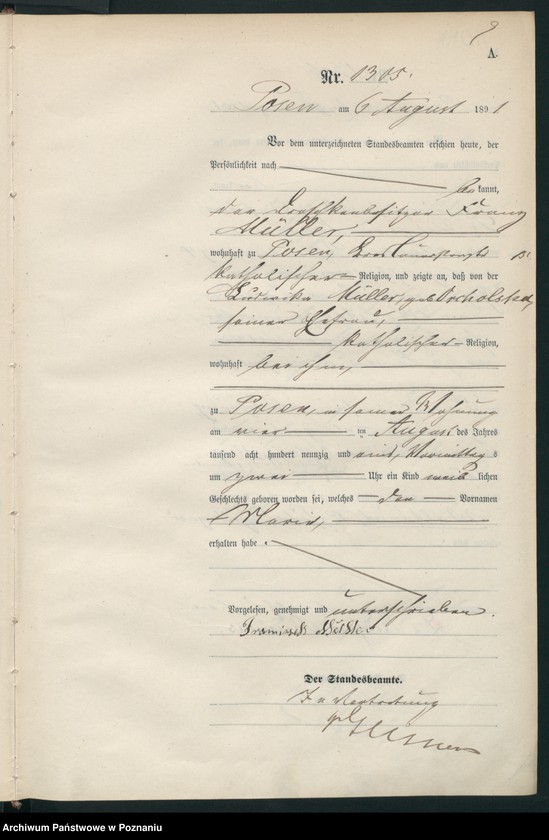 A.
Nr. 1305.
Posen am 6 August 1891
Vor dem unterzeichneten Standesbeamten erschien heute, der
Persönlichkeit nach
bekannt,
der Droschkenbesitzer Franz
Müller,
wohnhaft zu Posen,
katholischer Religion, und zeigte an, daß von der
Ludwika Müller, geb.
seiner Ehefrau,
katholischer Religion,
wohnhaft bei ihm,
zu Posen, in seiner Wohnung
am vier ten August des Jahres
tausend acht hundert neunzig und eins, Vormittags
um zwei Uhr ein Kind weiblichen
Geschlechts geboren worden sei, welches den Vornamen
Maria,
erhalten habe.
Vorgelesen, genehmigt und unterschrieben.
Der Standesbeamte.
In Vertretung
Archiwum Państwowe w Poznaniu